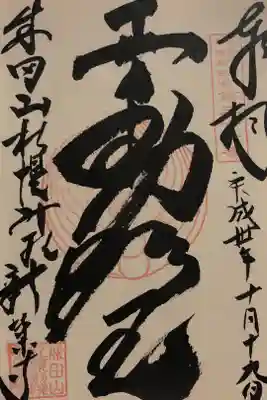 奉拝
平成卅年十月十九日
不動明王
成田山札幌別院新栄寺
成田山